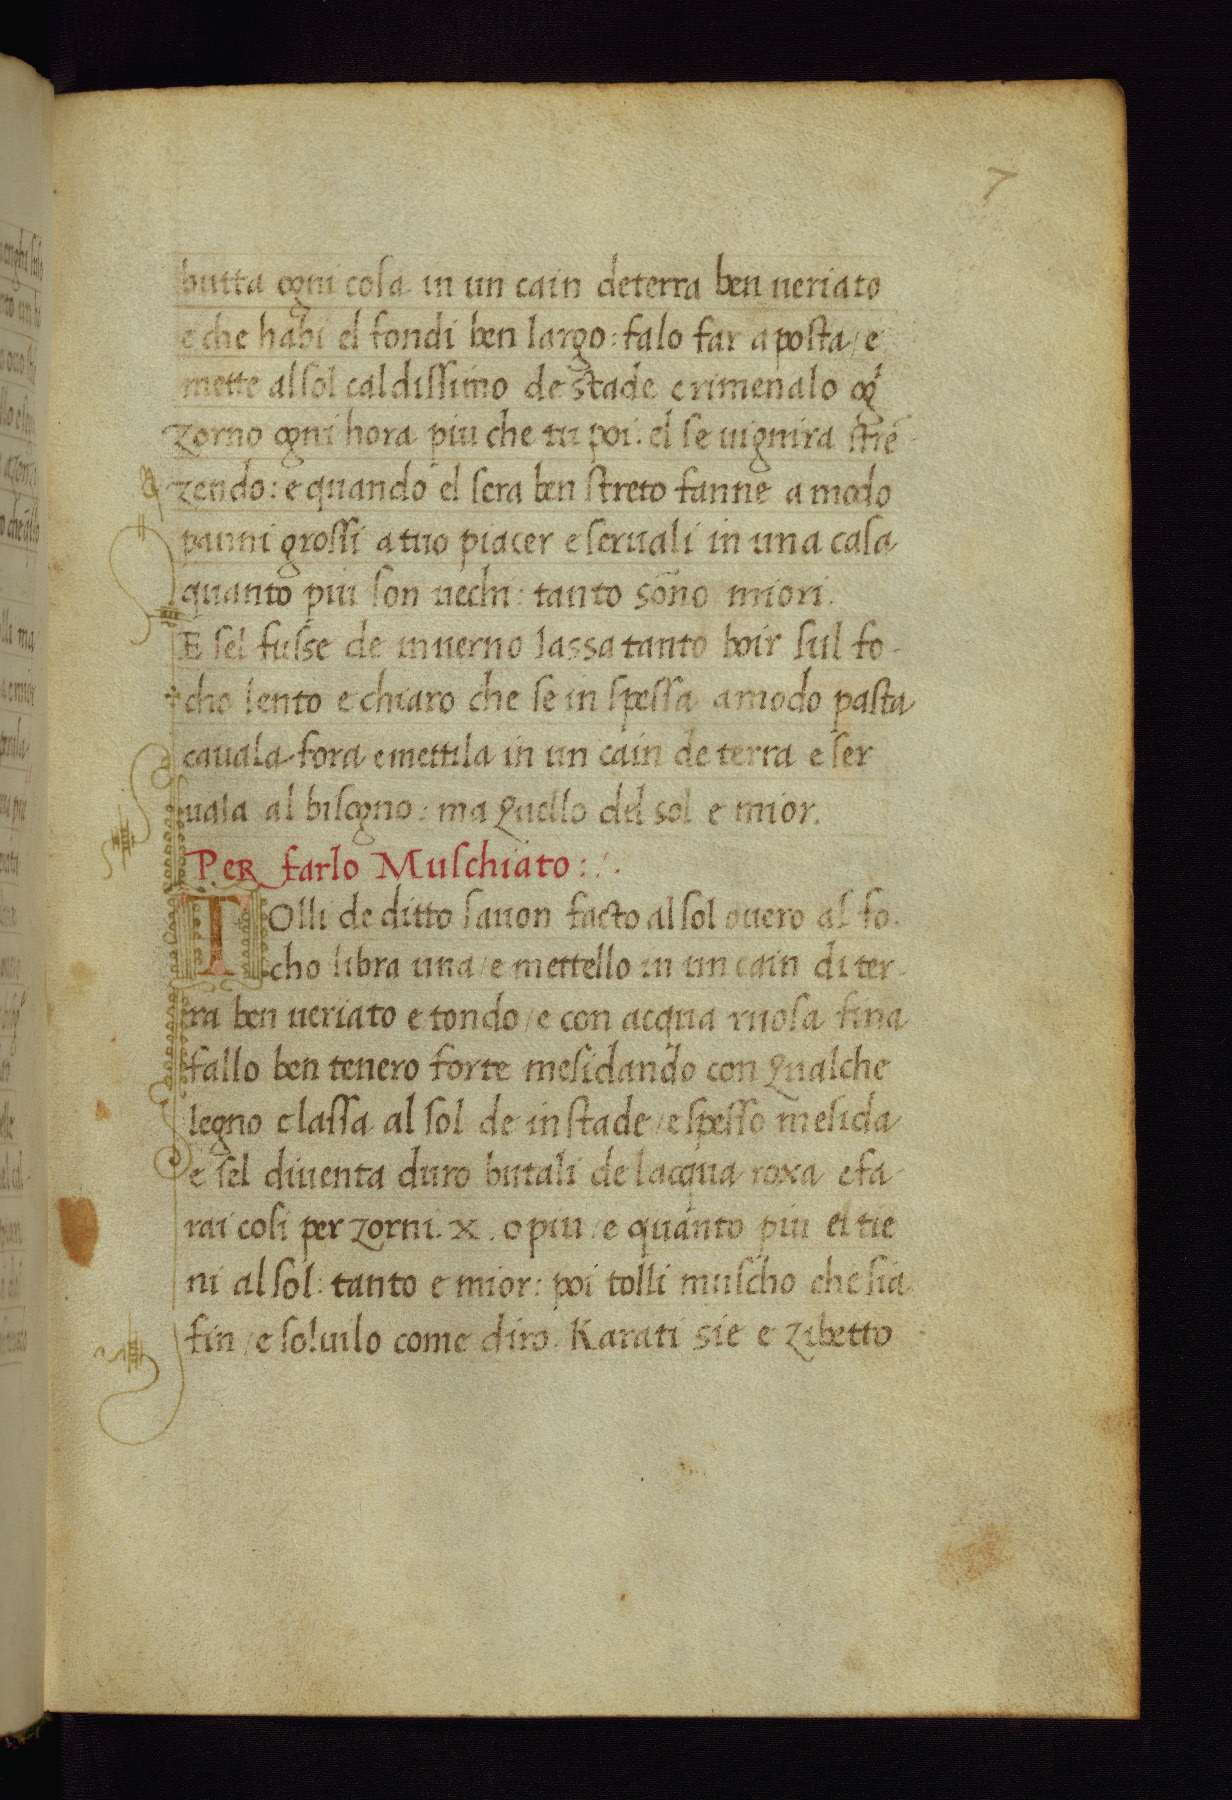 7
butta ogni cosa in un cain deterra ben ueriato
e che habi el fondi ben largo: falo far aposta / e
mette alsol caldissimo de stade e rimenalo og̃
zorno ogni hora piu che tu poi. el se uignira stre᷈
zendo: e quando el sera ben streto fanne amodo
panni grossi a tuo piacer e seruali in una casa
quanto piu son uechi: tanto sõno miori.
E sel fusse de inuerno lassa tanto boir sul fo-
cho lento e chiaro che se in spessa amodo pasta
cauala fora emettila in un cain de terra e ser
uala al bisogno: ma quello del sol e mior.
Per farlo Muschiato:
TOlli de ditto sauon facto alsol ouero al fo.
cho libra una / e mettello in un cain di ter
ra ben ueriato e tondo / e con acqua ruosa fina
fallo ben tenero forte mesidando con qualche
legno e lassa al sol de instade / e spesso mesida
e sel diuenta duro butali de lacqua roxa e fa
rai cosi per zorni. x. o piu / e quanto piu el tie
ni alsol: tanto e mior: poi tolli muscho che sia
fin / e soluilo come diro. Karati sie e zibetto